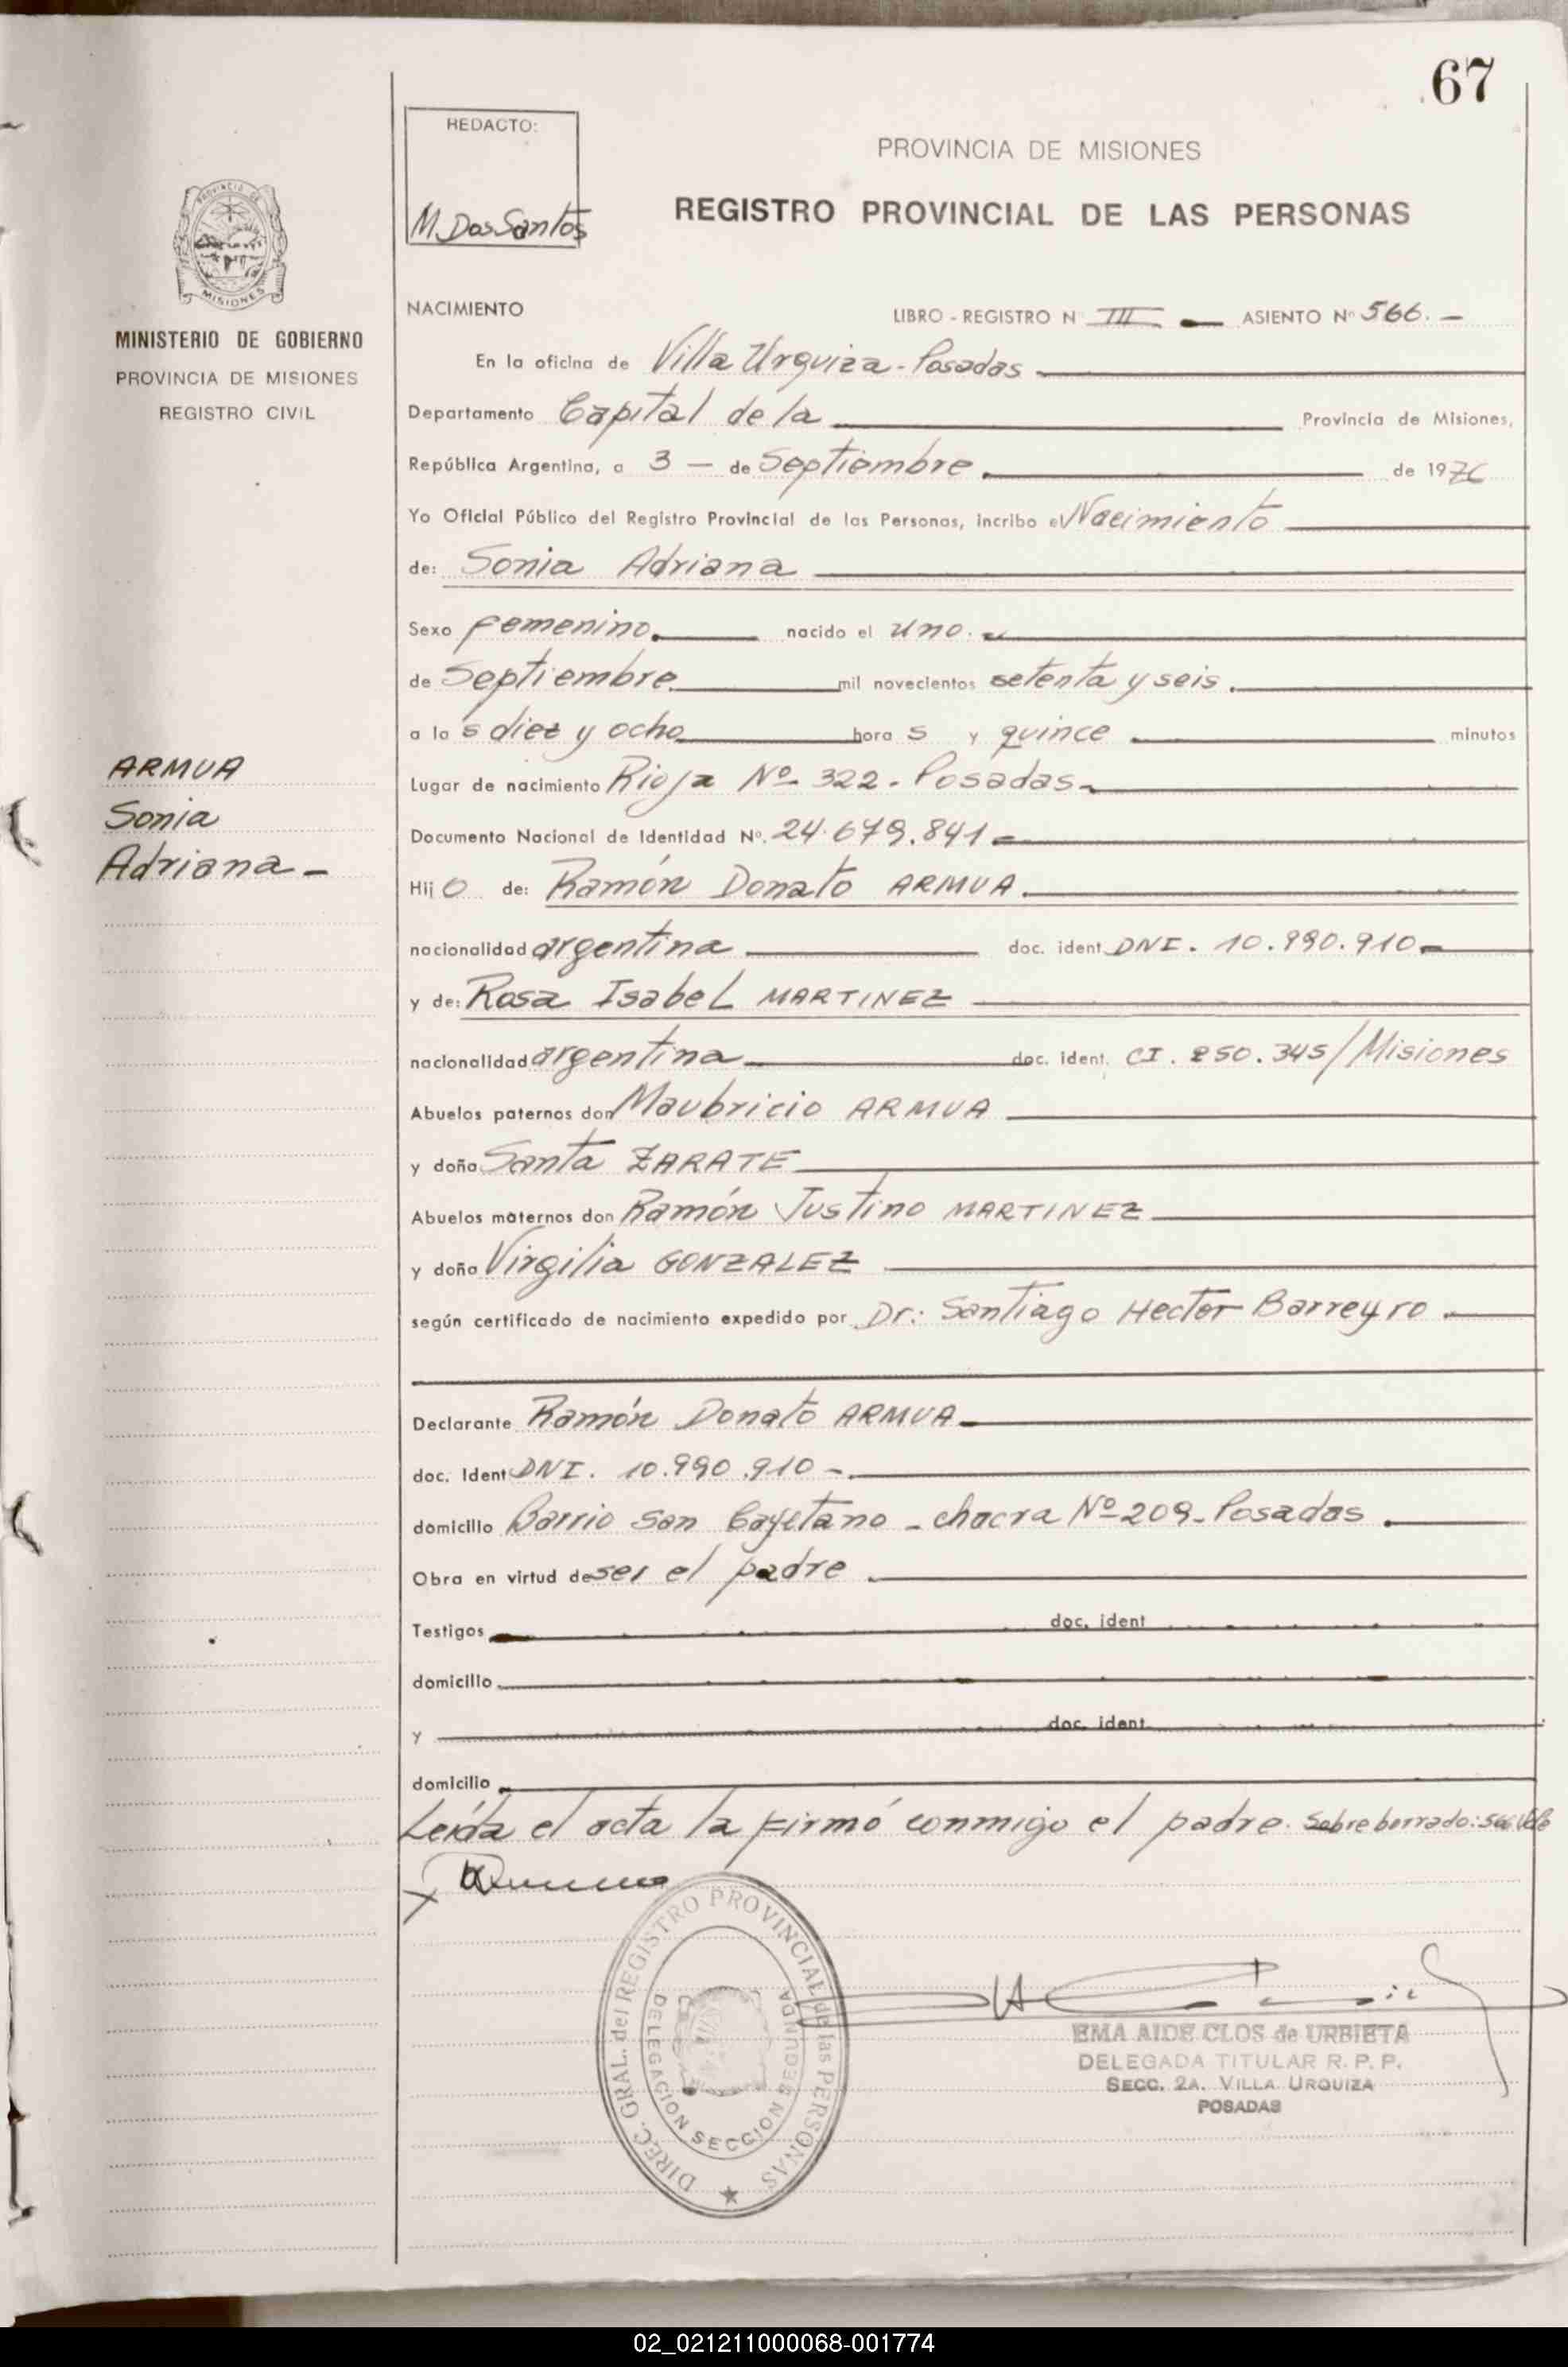 67
REDACTO:
M. Dos Santos
PROVINCIA DE MISIONES
REGISTRO PROVINCIAL DE LAS PERSONAS
PROVINCIA DE
MISIONES
MINISTERIO DE GOBIERNO
PROVINCIA DE MISIONES
REGISTRO CIVIL
NACIMIENTO LIBRO - REGISTRO N III — ASIENTO Nº 566. —
En la oficina de Villa Urquiza - Posadas
Departamento Capital de la Provincia de Misiones,
República Argentina, a 3 — de Septiembre de 1976
Yo Oficial Público del Registro Provincial de las Personas, incribo el Nacimiento
de: Sonia Adriana
Sexo femenino. nacido el uno.
de Septiembre mil novecientos setenta y seis.
a las diez y ocho horas y quince minutos
ARMUA
Sonia
Adriana —
Lugar de nacimiento Rioja Nº 322 - Posadas
Documento Nacional de Identidad Nº. 24.679.841
Hijo de: Ramón Donato ARMUA.
nacionalidad argentina doc. ident. DNI. 10.990.910
y de: Rosa Isabel MARTINEZ
nacionalidad argentina doc. ident. CI. 250.345/Misiones
Abuelos paternos don Maubricio ARMUA
y doña Santa ZARATE
Abuelos maternos don Ramón Justino MARTINEZ
y doña Virgilia GONZALEZ
según certificado de nacimiento expedido por Dr: Santiago Hector Barreyro.
Declarante Ramón Donato ARMUA
doc. Ident DNI. 10.990.910 -.
domicilio Barrio San Cayetano - chacra Nº 209 - Posadas.
Obra en virtud de ser el padre.
Testigos doc. ident
domicilio
y doc. ident
domicilio
Leída el acta la firmó conmigo el padre. Sobre borrado: 566 Vale
DIREC. GRAL. del REGISTRO PROVINCIAL de las PERSONAS
DELEGACION SECCION SEGUNDA
EMA AIDE CLOS de URBIETA
DELEGADA TITULAR R. P. P.
SECC. 2A. VILLA URQUIZA
POSADAS
02_021211000068-001774